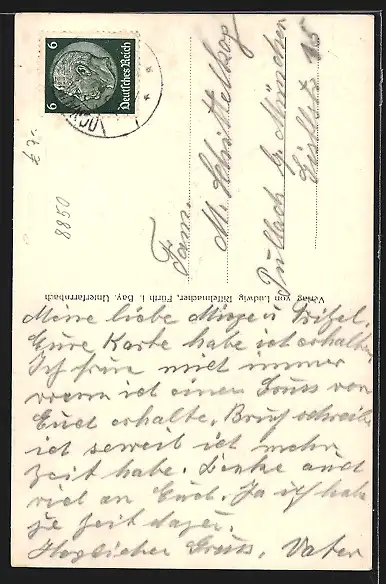 6 6
Deutsches Reich
Fam.
M. Schittelkop
Pullach b. München
Verlag von Ludwig Riffelmacher, Fürth i. Bay. Unterfarrnbach
£ 7.-
8850
Meine liebe
Eure Karte habe ich erhalten
Ich freue mich immer
wenn ich einen Gruss von
Euch erhalte. Brief schreibe
ich soweit ich mehr
Zeit habe. Denke auch
viel an Euch. Ja ich habe
ja Zeit dazu.
Herzlichen Gruss, Vater